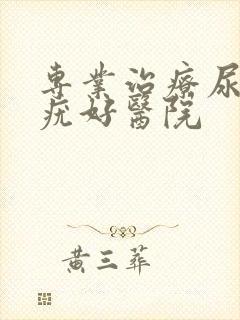 專業治療尿
疣好醫院
黃三葬